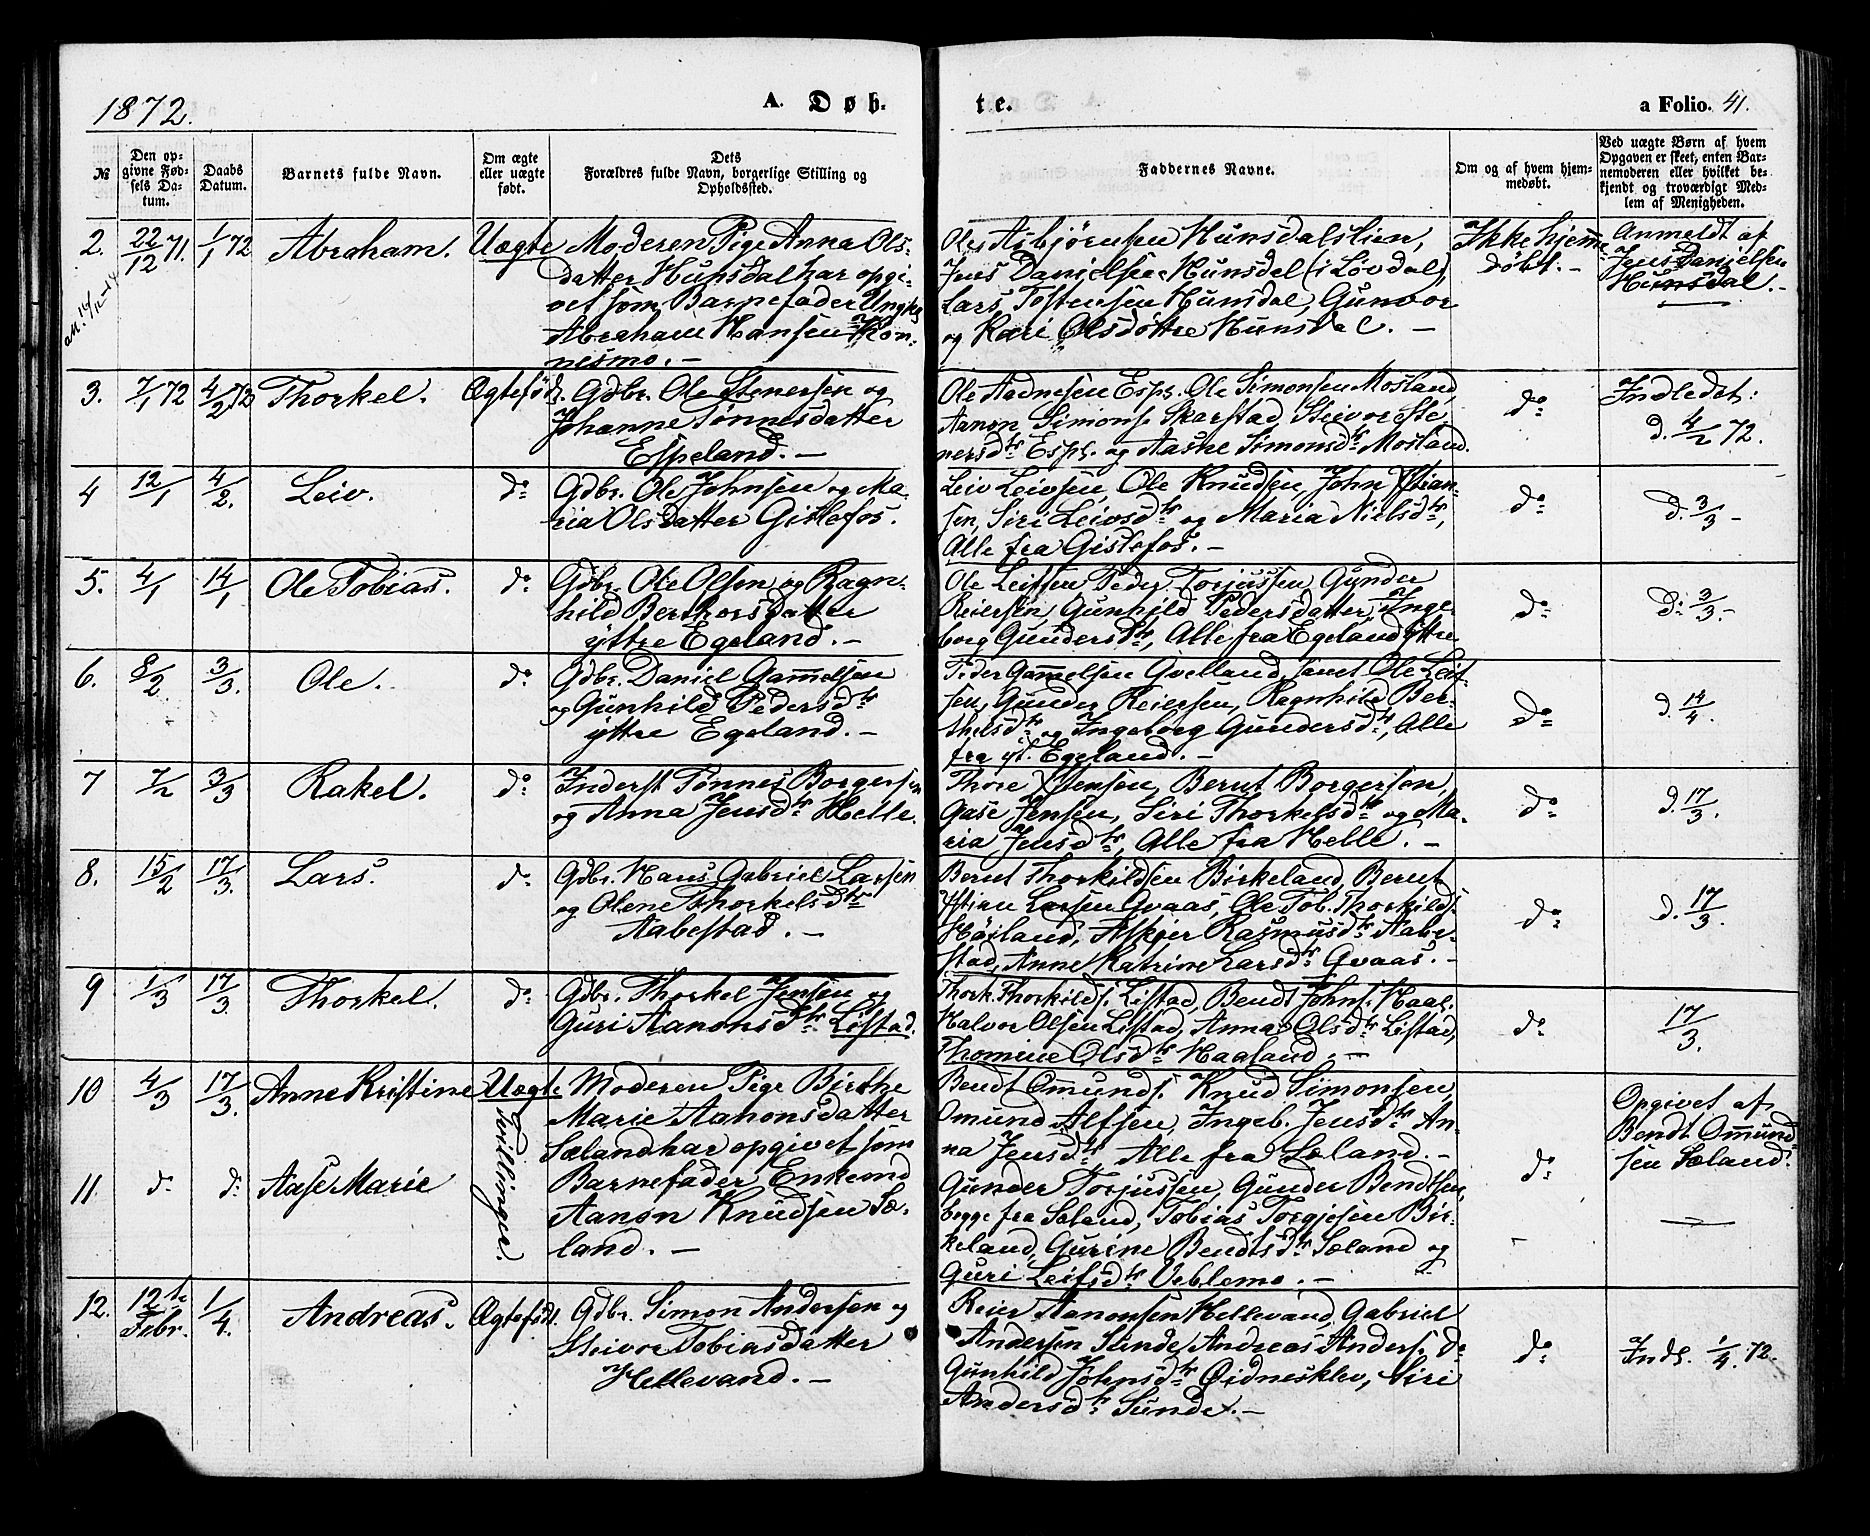 1872.
A. Døb-
te.
a Folio. 41.
№
Den opgivne Fødsels Datum.
Daabs Datum.
Barnets fulde Navn.
Om ægte eller uægte født.
Dets Forældres fulde Navn, borgerlige Stilling og Opholdssted.
Faddernes Navne.
Om og af hvem hjemmedøbt.
Ved uægte Børn af hvem Opgaven er skeet, enten Barnemoderen eller hvilket bekjendt og troværdigt Medlem af Menigheden.
2. 22/12 71. 1/1 72 Abraham. Uægte
Moderen Pige Anna Ols-
datter Hunsdal har opgi-
vet som Barnefader Ungk.
Abraham Hansen Kon-
nesmo. –
Ole Asbjørnsen Hunsdalslien,
Jens Danielsen Hunsdal (i Løvdal)
Lars Tostensen Hunsdal, Gunvor
og Kari Olsdøttre Hunsdal. –
Ikke hjemme
døbt. –
Anmeldt af
Jens Danielsen
Hunsdal. –
3. 7/1 72 4/2 72 Thorkel. Ægtefød.
Gdbr. Ole Stenersen og
Johanne Tønnesdatter
Espeland. –
Ole Aadnesen Espl. Ole Simonsen Mosland,
Aanon Simons. Skarstad, Sievor Ste
nersdtr Espl. og Aaske Simonsdtr Mosland.
do
Indledet:
d. 4/2 72.
4 12/1 4/2. Leiv. do
Gdbr. Ole Johnsen og Ma-
ria Olsdatter Gislefos.
Leiv Leivsen, Ole Knudsen, John Stian-
sen, Siri Leivsdtr og Maria Nielsdtr,
Alle fra Gislefos. –
do
d. 3/3 –
5. 4/1 14/1 Ole Tobias. do
Gdbr. Ole Olsen og Ragn-
hild Berthorsdatter
ÿttre Egeland. –
Ole Leifsen Peder Torjussen Gunder
Reiersen, Gunhild Pedersdatter, Inge-
borg Gundersdtr, Alle fra Egeland ÿttre
do
d: 3/3. –
6. 8/2 3/3. Ole. do
Gdbr. Daniel Gammelsen
og Gunhild Pedersdtr
ÿttre Egeland. –
Peder Gammelsen Qvelland, samt Ole Leif-
sen, Gunder Reiersen, Ragnhild Ber-
thelsdtr og Ingeborg Gundersdtr, Alle
fra yt. Egeland. –
do
d. 14/4.
7 7/2 3/3 Rakel. do
Inderst Tønnes Borgersen
og Anna Jensdtr Helle.
Thore Stensen, Bernt Borgersen,
Gase Jensen, Siri Thorkelsdtr og Ma-
ria Jensdtr, Alle fra Helle. –
do
d. 17/3.
8. 15/2 17/3. Lars. do
Gdbr. Hans Gabriel Larsen
og Olene Thorkelsdtr
Aabestad. –
Bernt Thorkildsen Birkeland, Bernt
Larsen Qvaas, Ole Tob. Thorkilds.
Høiland, Askjer Rasmusdtr Aabe-
stad, Anne Katrine Larsdtr Qvaas. –
do
d. 17/3.
9 1/3 17/3. Thorkel. do
Gdbr. Thorkel Jensen og
Guri Aanonsdtr Listad.
Thork. Thorkilds. Listad, Bendt Johns. Haal.
Halvor Olsen Listad, Anna Olsdtr Listad,
Thomine Olsdtr Haaland. –
do
17/3.
10 4/3 17/3. Anne Kristine Uægte
Tvillinger.
Moderen Pige Birthe
Marie Aanonsdatter
Sæland har opgivet som
Barnefader Enkemd
Aanon Knudsen Sæ-
land. –
Bendt Ommunds. Knud Simonsen,
Omund Alfsen, Ingeb. Jensdtr An-
na Jensdtr Alle fra Sæland. –
Opgivet af
Bendt Ommund-
sen Sæland.
11 do do Aase Marie
Gunder Torjussen, Gunder Bendtsen,
begge fra Sæland, Tobias Torgjesen Bir-
keland, Gurine Bendtsdtr Sæland og
Guri Leifsdtr Veblemo. –
do
12. 12te Febr. 1/4. Andreas. Ægtefød.
Gdbr. Simon Andersen og
Sievor Tobiasdatter
Hellevand. –
Reier Aanonsen Hellevand, Gabriel
Andersen Sunde, Andreas Anders. do
Gunhild Johnsdtr Øidnesklev, Siri
Andersdtr Sunde. –
do
Indl. 1/4. 72.